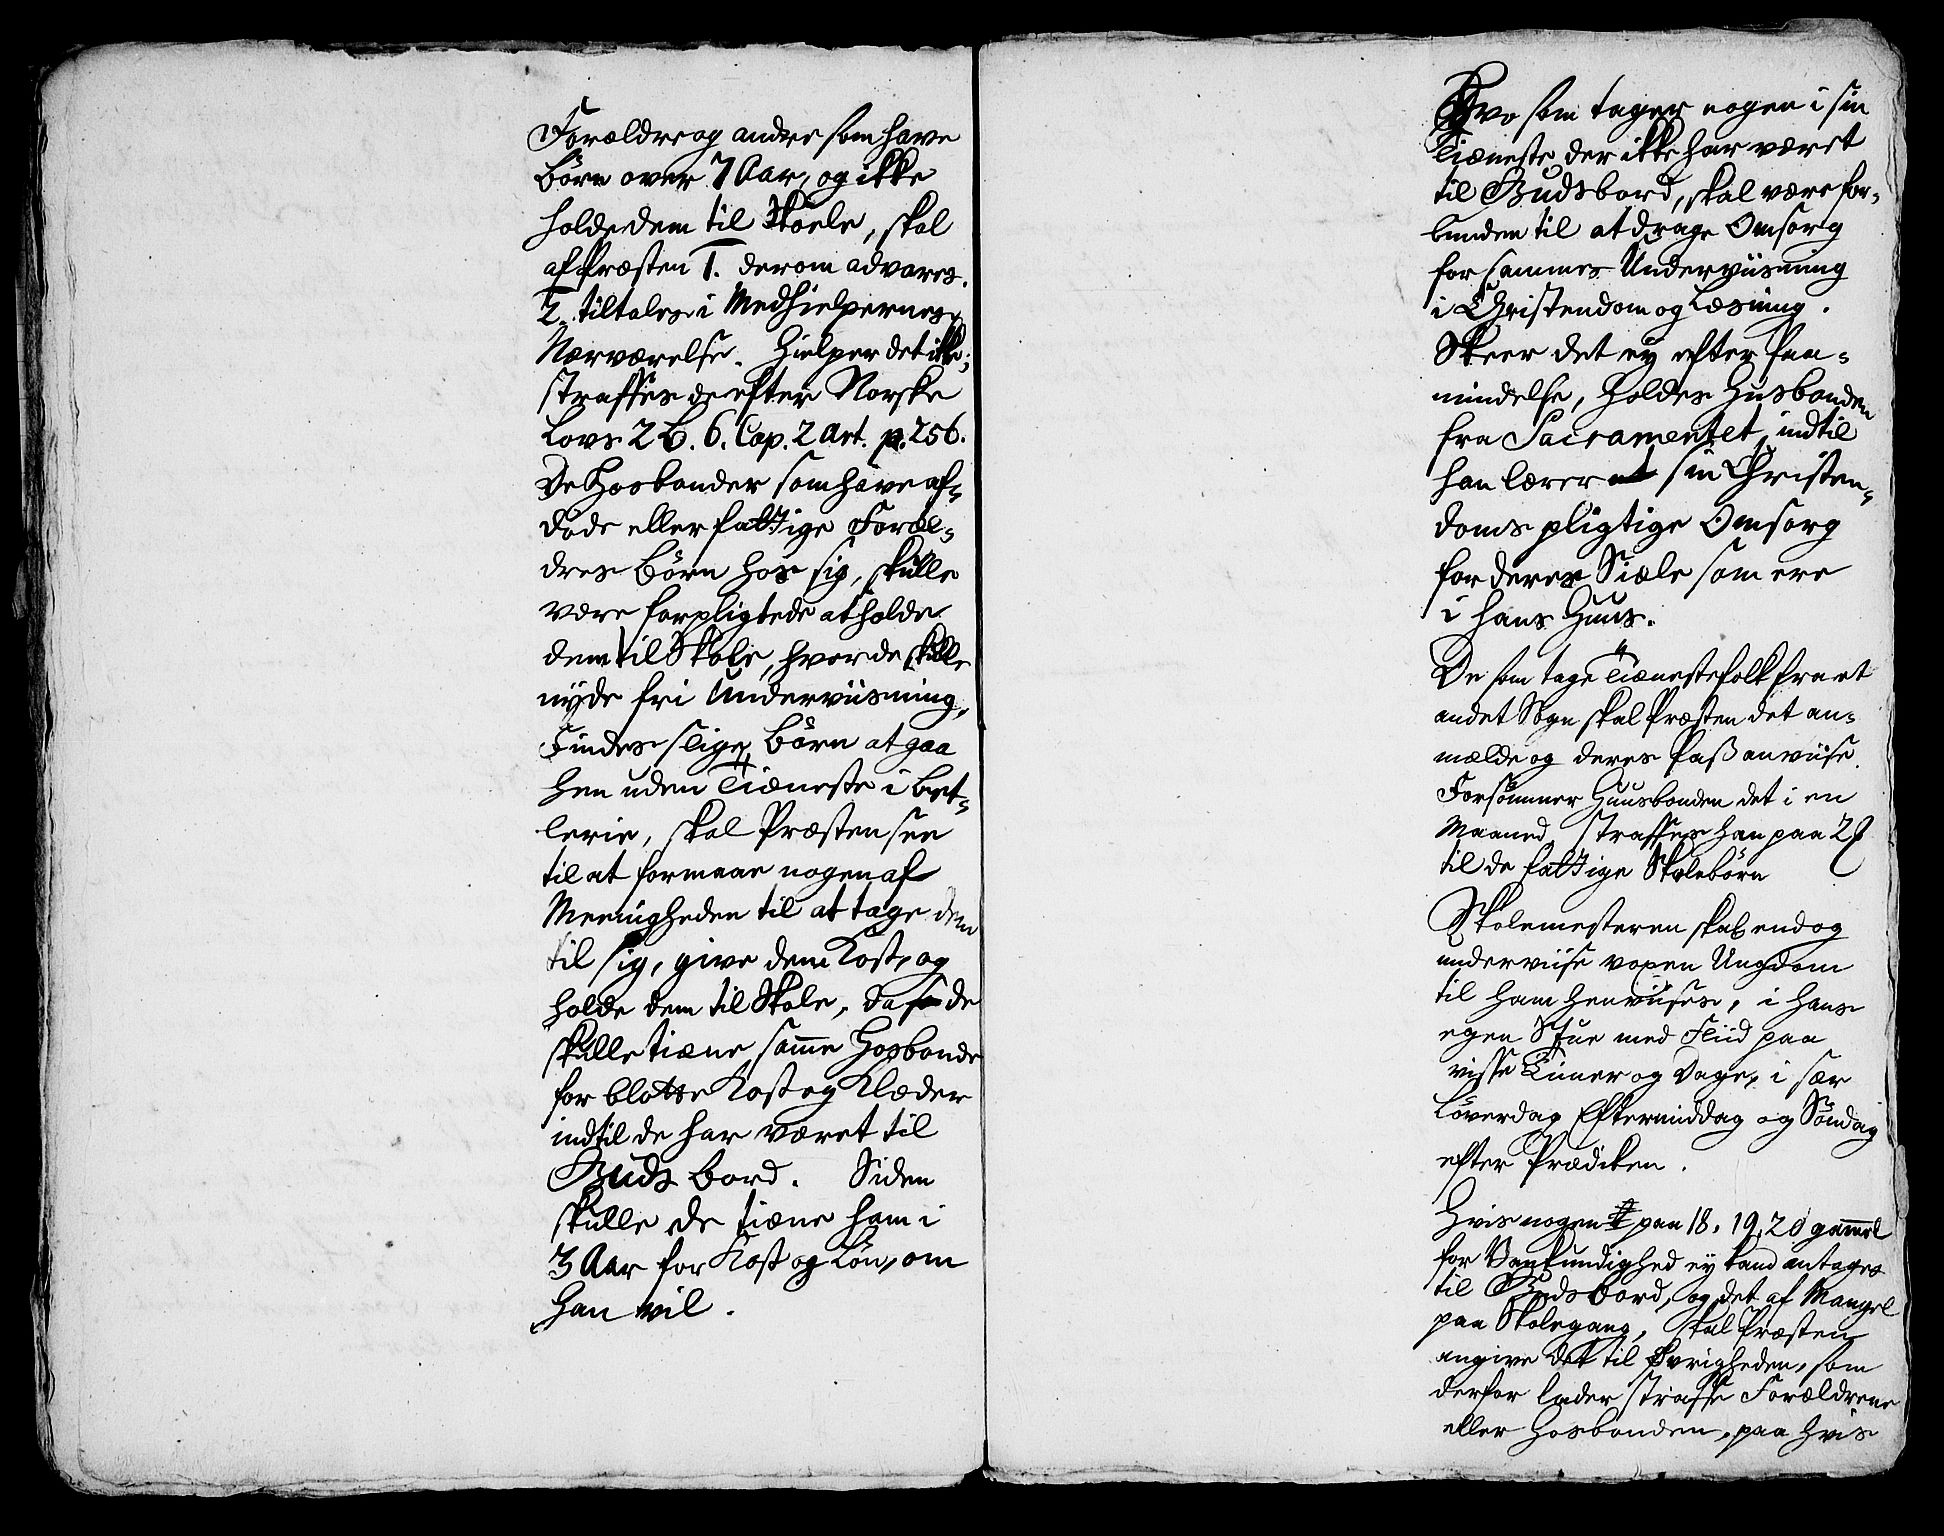 Forældre og andre som have
Børn over 7 Aar, og ikke
holde dem til Skoele, skal
af Præsten 1. derom advares.
2. tiltales i Medhielpernes
Nærværelse. Hielper det ikke;
straffes de efter Norske
Lovs 2 B. 6. Cap. 2 Art. p. 256.
De Hosbonder som have af-
døde eller fattige Foræl-
dres Børn hos sig, skulle
være forpligtede at holde
dem til Skole, hvor de skulle
nyde fri Underviisning,
Findes slige Børn at gaa
hen uden Tiæneste i Bet-
lerie, skal Præsten see
til at formaae nogen af
Meenigheden til at tage dem
til sig, give dem Kost, og
holde dem til Skole, da de
skulle tiæne samme Hosbonde
for blotte Kost og Klæder
indtil de har været til
Guds bord. Siden
skulle de tiæne ham i
3 Aar for Kost og Løn, om
han vil.
Hvo som tager nogen i sin
Tiæneste der ikke har været
til Gudsbord, skal være for-
bunden til at drage Omsorg
for sammes Underviisning
i Christendom og Læsning.
Skeer det ey efter Paa-
mindelse, holdes Husbonden
fra Sacramentet, indtil
han lærer sin Christen-
doms pligtige Omsorg
for deres Siæle som ere
i hans Huus.
De som tage Tiænestefolk fra et
andet Sogn skal Præsten det an-
mælde og deres Pass anviise.
Forsømmer Huusbonden det i en
Maaned, straffes han paa 2
til de fattige Skolebørn
Skolemesteren skal endog
underviise voxen Ungdom
til ham henviises, i hans
egen Stue med Fliid paa
visse Timer og Dage, i sær
Løverdag Eftermiddag og Søndag
efter Prædiken.
Hvis nogen paa 18. 19. 20 gammel
for Vankundighed ey kand antages
til Guds bord, og det af Mangel
paa Skolegang, skal Præsten
angive det til Øvrigheden, som
derfor lader straffe Forældrene
eller Hosbonden, paa hvis